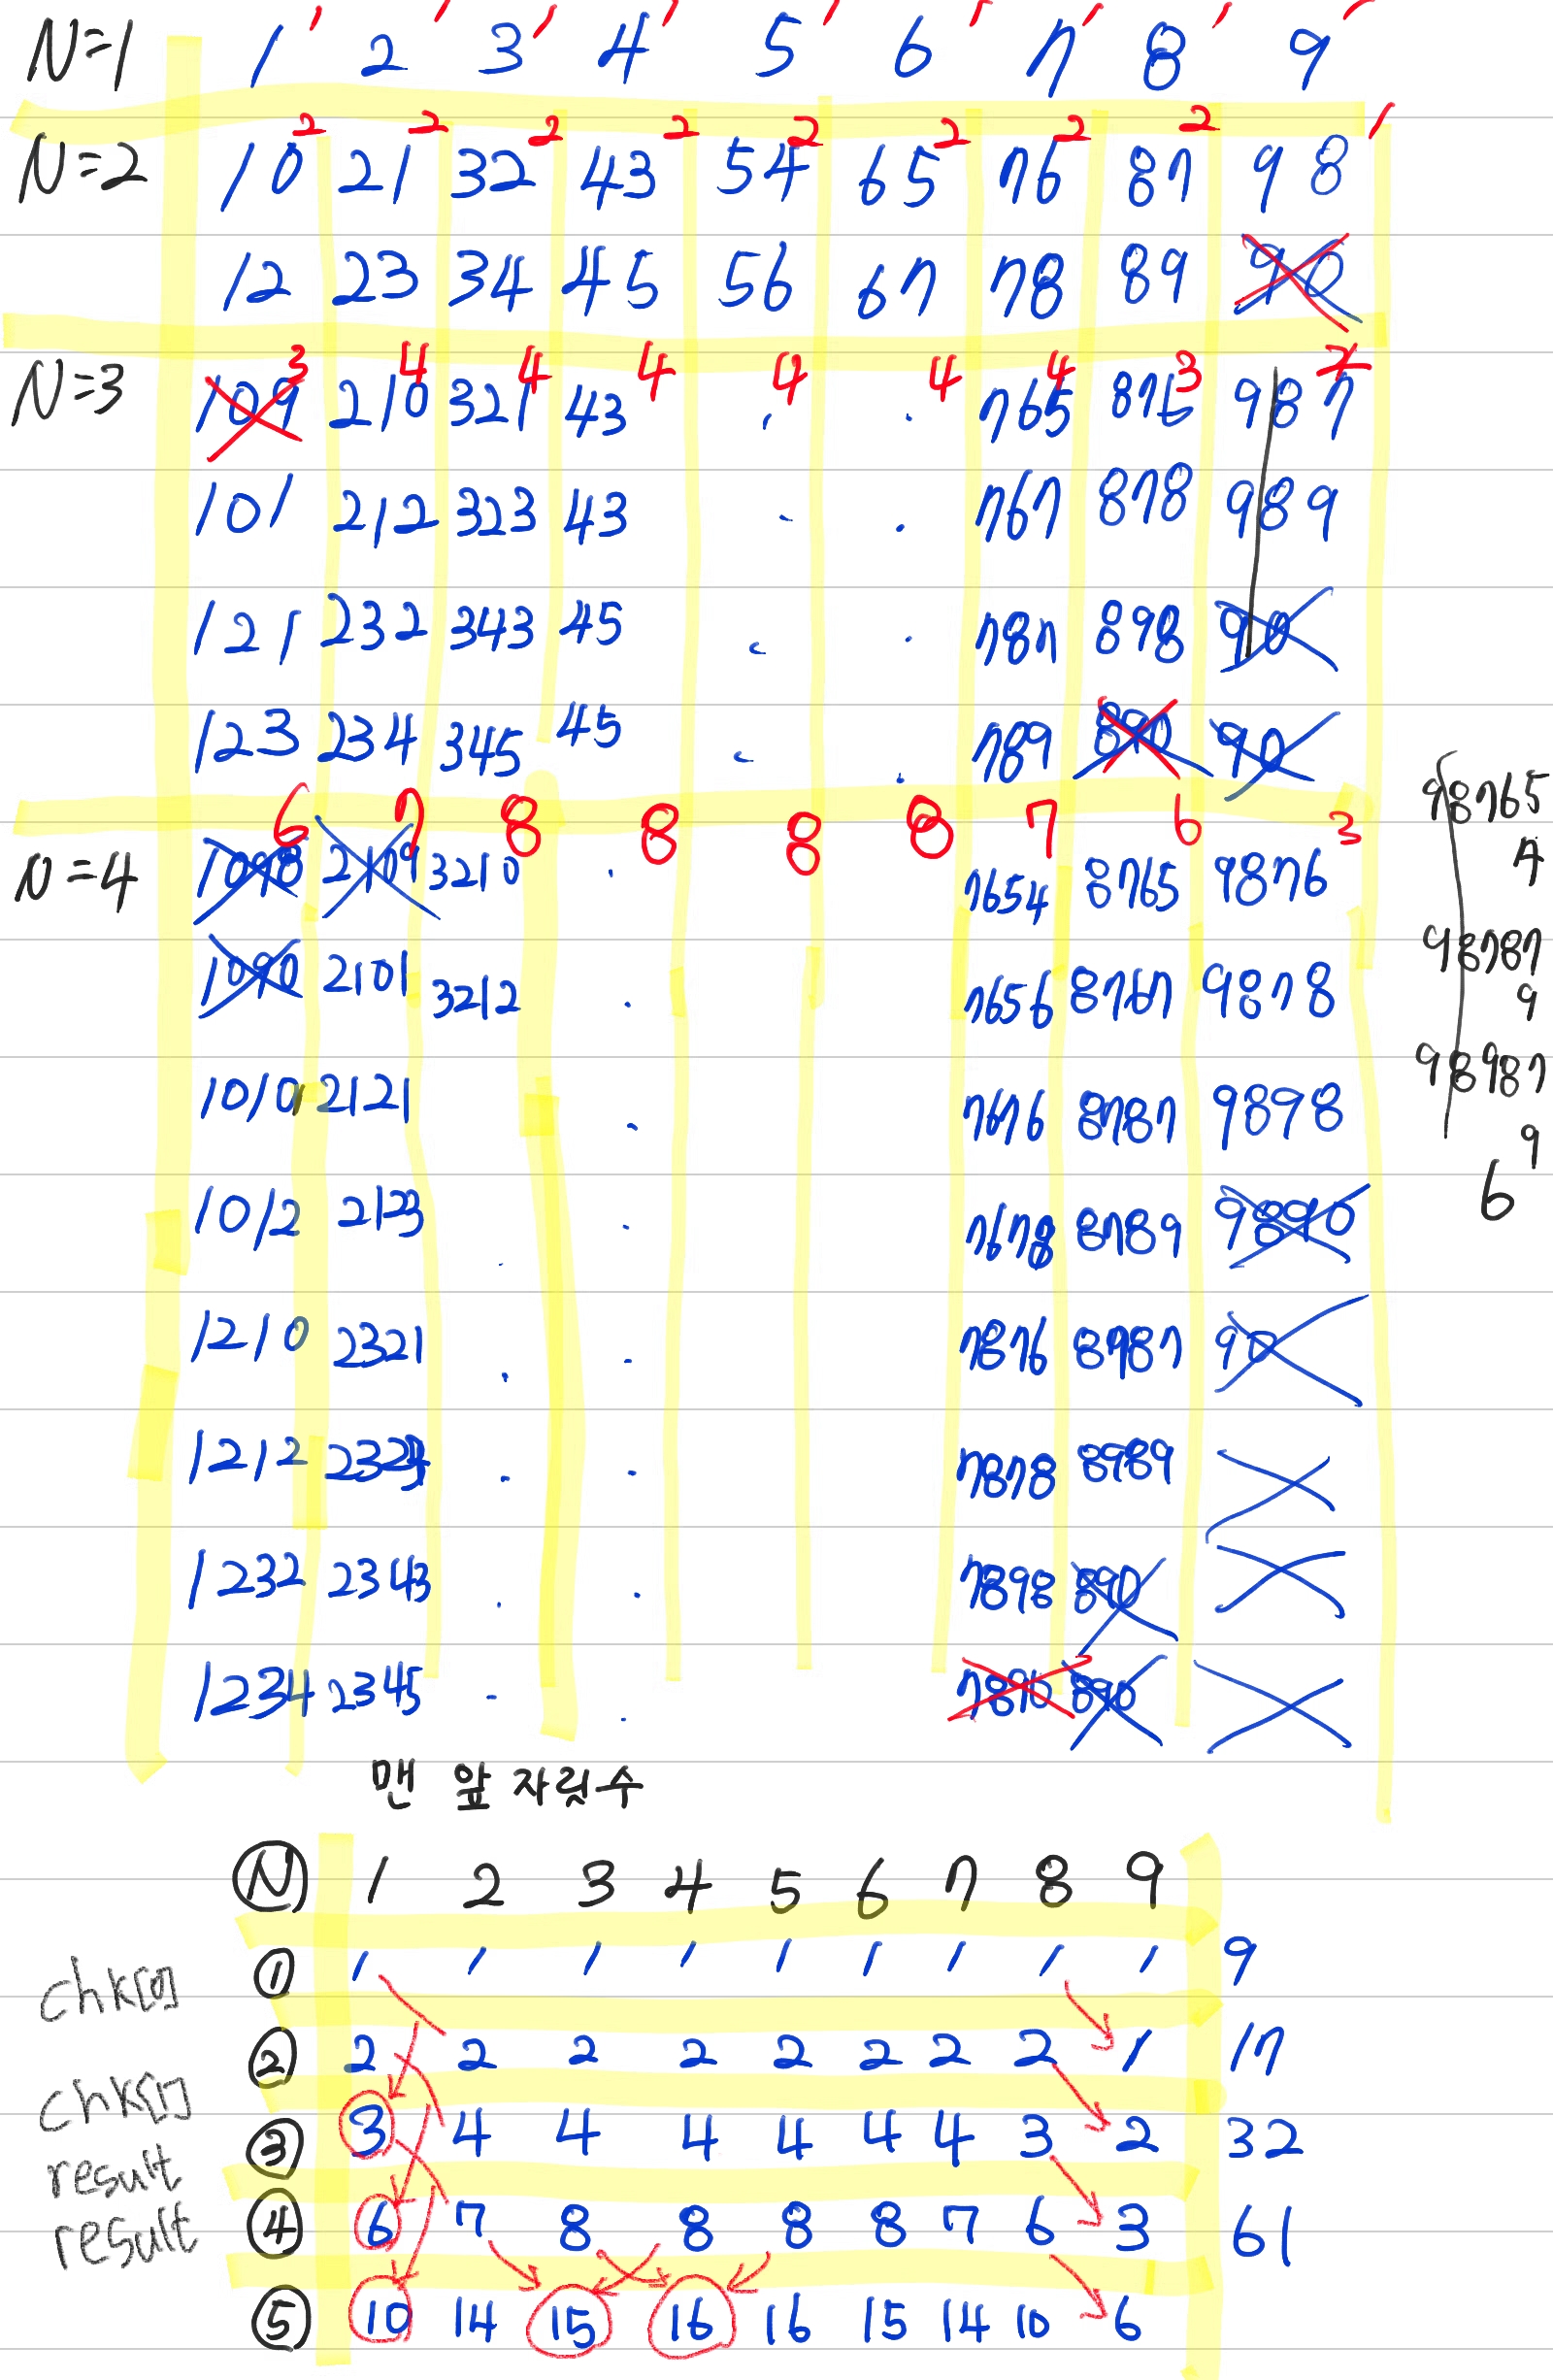 N=1 1 1 2 1 3 1 4 1 5 1 6 1 7 1 8 1 9 1
N=2 10 2 21 2 32 2 43 2 54 2 65 2 76 2 87 2 98 1
12 23 34 45 56 67 78 89 90
N=3 109 3 210 4 321 4 43 4 . 4 . 4 765 4 876 3 987 2
101 212 323 43 . . 767 878 989
121 232 343 45 . . 787 898 90
123 234 345 45 . . 789 890 90
6 7 8 8 8 8 7 6 3
N=4 1098 2109 3210 . 7654 8765 9876
1090 2101 3212 . 7656 8767 9878
1010 2121 . 7676 8787 9898
1012 2123 . . 7678 8789 9890
1210 2321 . . 7876 8987 90
1212 2323 . . 7878 8989
1232 2343 . . 7898 890
1234 2345 . . 7890 890
98765
4
98787
9
98987
9
6
맨 앞 자릿수
N 1 2 3 4 5 6 7 8 9
chk[0] ① 1 1 1 1 1 1 1 1 1 9
chk[1] ② 2 2 2 2 2 2 2 2 1 17
result ③ 3 4 4 4 4 4 4 3 2 32
result ④ 6 7 8 8 8 8 7 6 3 61
⑤ 10 14 15 16 16 15 14 10 6